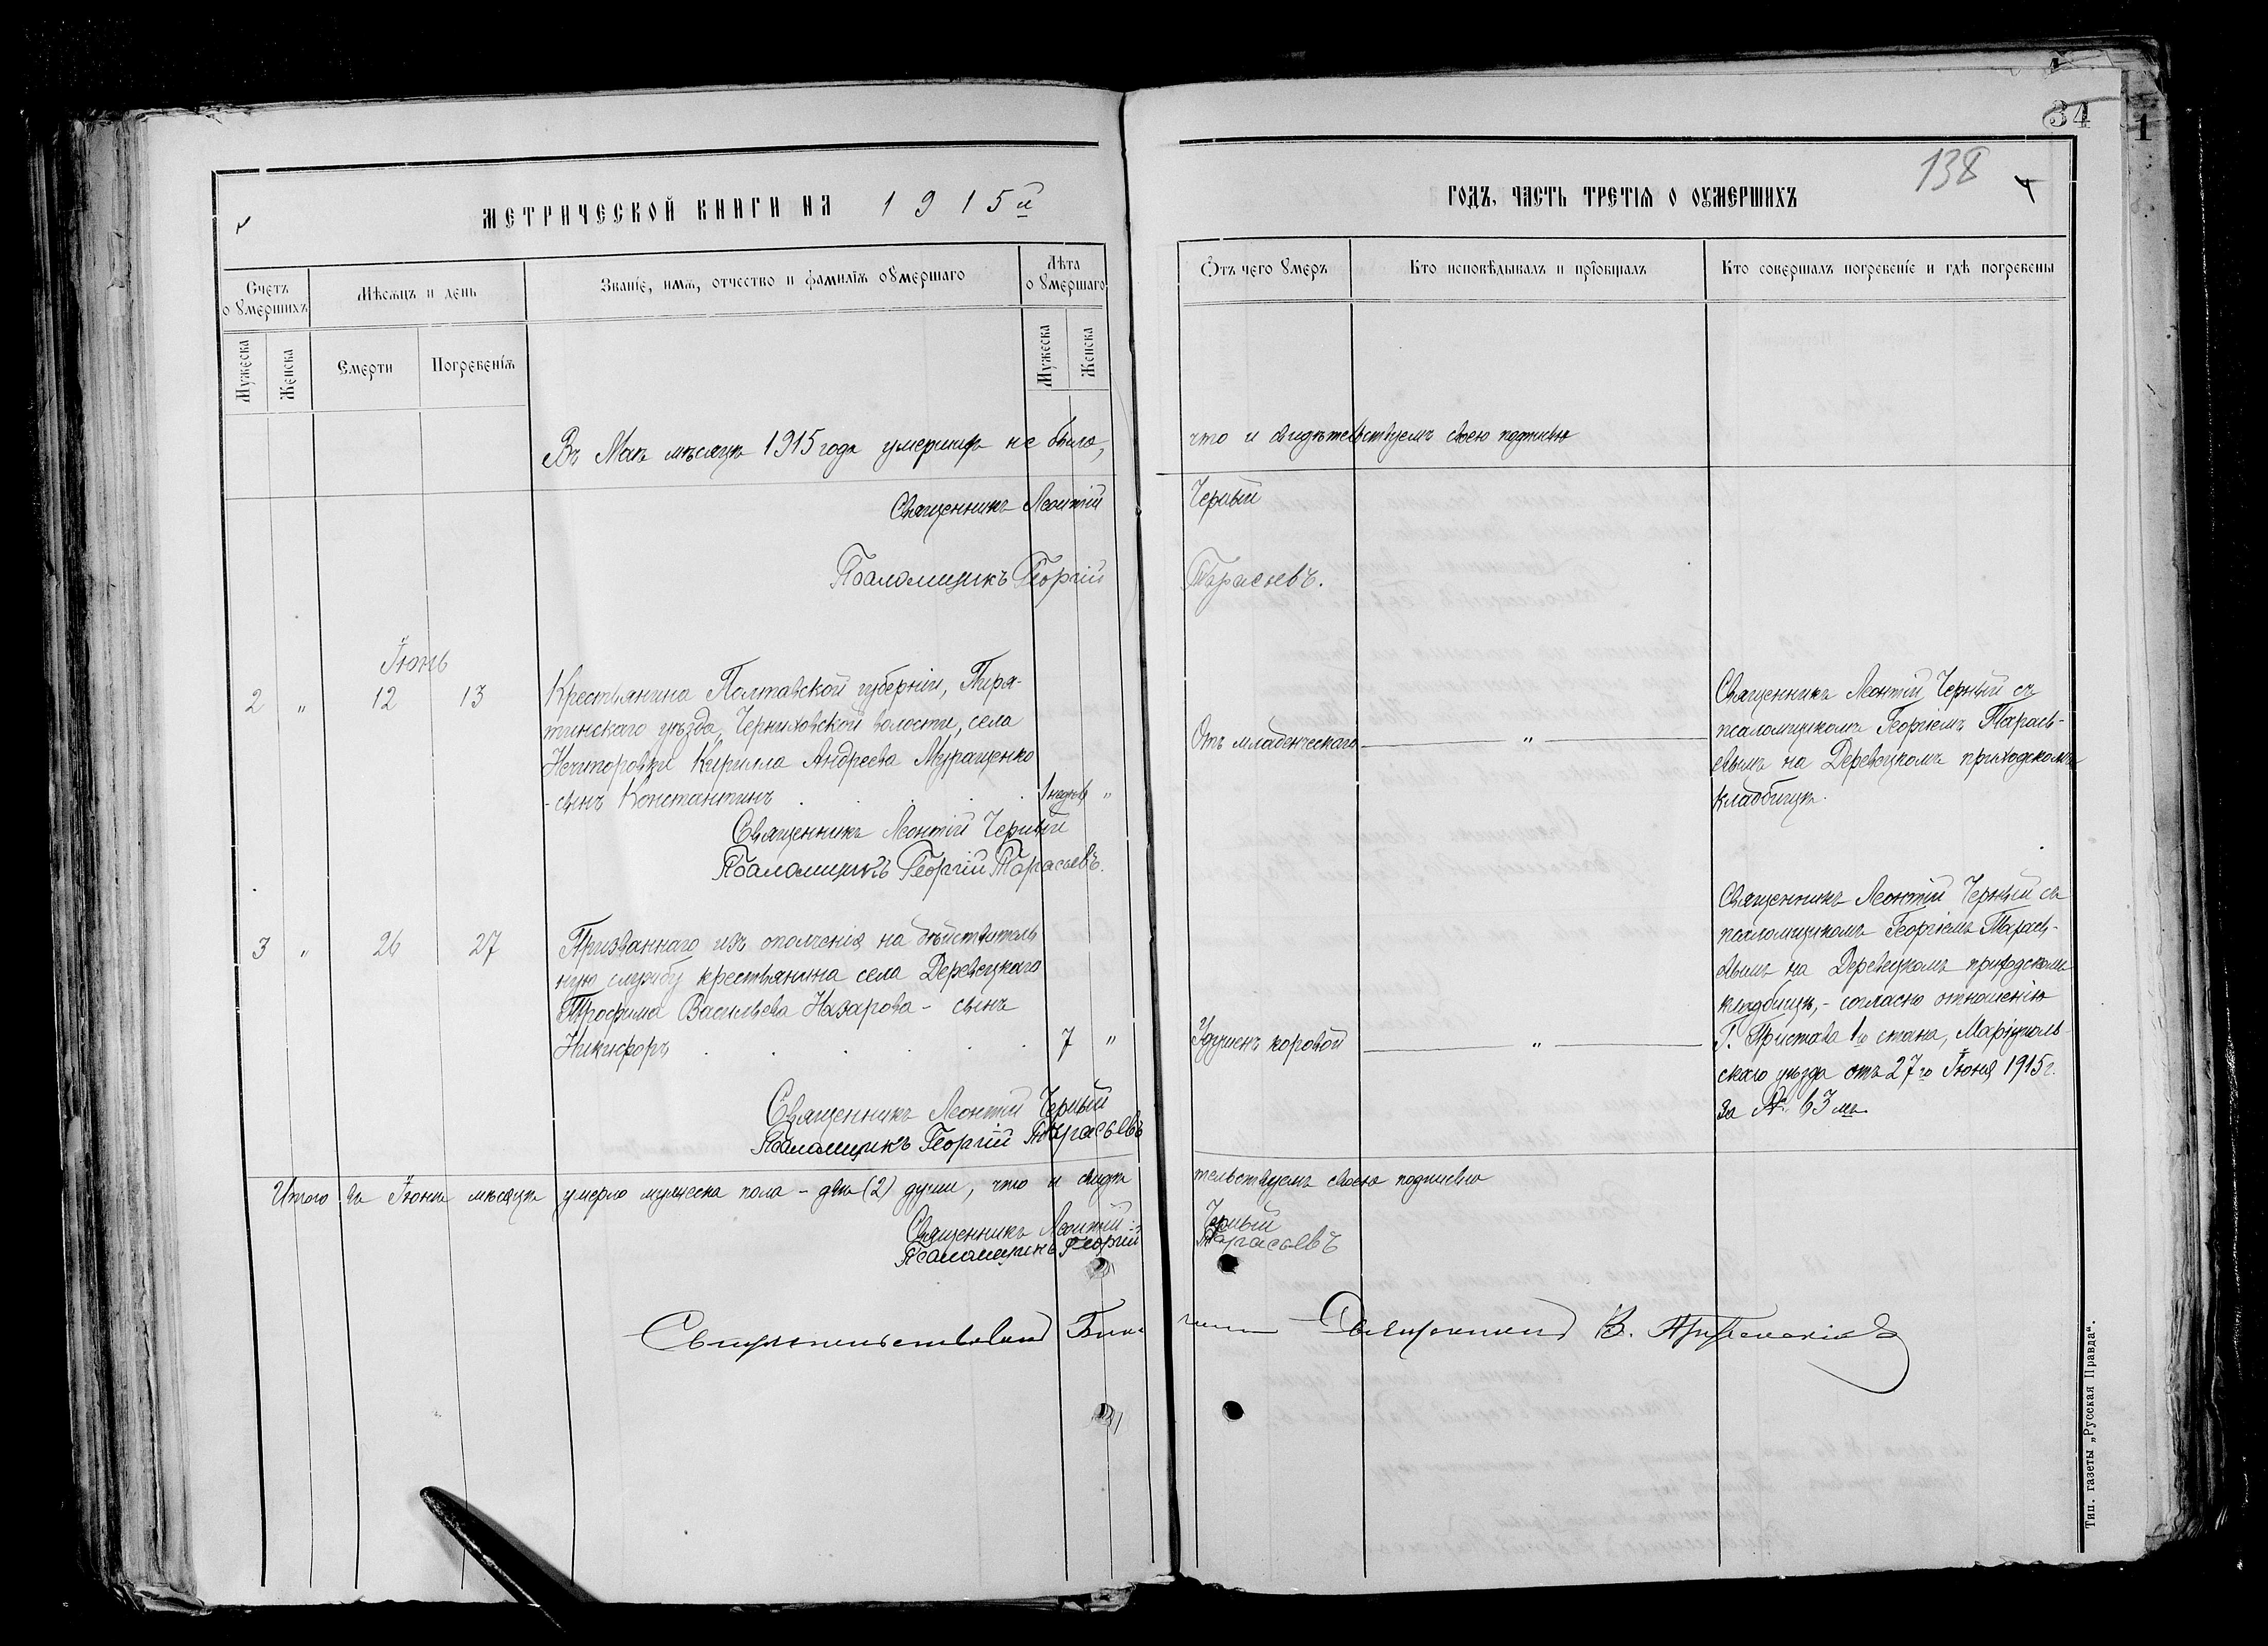 34
1
138
МЕТРИЧЕСКОЙ КНИГИ НА 1915й
ГОДЪ, ЧАСТЬ ТРЕТІѦ О ОУМЕРШИХЪ
Счетъ оумершихъ
Мѣсѧцъ и день
Званіе, имѧ, отчество и фамиліѧ оумершаго
Лѣта оумершаго
Мужеска
Женска
Смерти
Погребеніѧ
Мужеска
Женска
Ѿтъ чего оумеръ
Кто исповѣдывалъ и пріобщалъ
Кто совершалъ погребеніе и гдѣ погребены
Въ Маѣ мѣсяцѣ 1915 года умершихъ не было, что и свидѣтельствуемъ своею подписью
Священникъ Леонтій Черный
Псаломщикъ Георгій Тарасьевъ.
Іюнь
2 " 12 13 Крестьянина Полтавской губерніи, Пиря-
тинскаго уѣзда, Черниховской волости, села
Нечипоровки Кирилла Андреева Муращенко
- сынъ Константинъ . . . . 1 недѣля "
Отъ младенческаго — " —
Священникъ Леонтій Черный съ
псаломщикомъ Георгіемъ Тарась-
евымъ на Деревецкомъ приходскомъ
кладбищѣ.
Священникъ Леонтій Черный
Псаломщикъ Георгій Тарасьевъ.
3 " 26 27 Призваннаго изъ ополченія на дѣйствитель
ную службу крестьянина села Деревецкаго
Трофима Васильева Назарова - сынъ
Никифоръ . . . . . 7 "
Удушенъ коровой — " —
Священникъ Леонтій Черный съ
псаломщикомъ Георгіемъ Тарась-
евымъ на Деревецкомъ приходскомъ
кладбищѣ, - согласно отношенію
Г. Пристава 1го стана, Маріуполь
скаго уѣзда отъ 27го Іюня 1915 г.
за №
Священникъ Леонтій Черный
Псаломщикъ Георгій Тарасьевъ
Итого въ Іюнѣ мѣсяцѣ умерло мужеска пола - двѣ (2) души, что и свидѣ тельствуемъ своею подписью
Священникъ Леонтій Черный
Псаломщикъ Георгій Тарасьевъ
Свидѣтельствовалъ Священникъ В.
Тип. газеты „Русская Правда“.